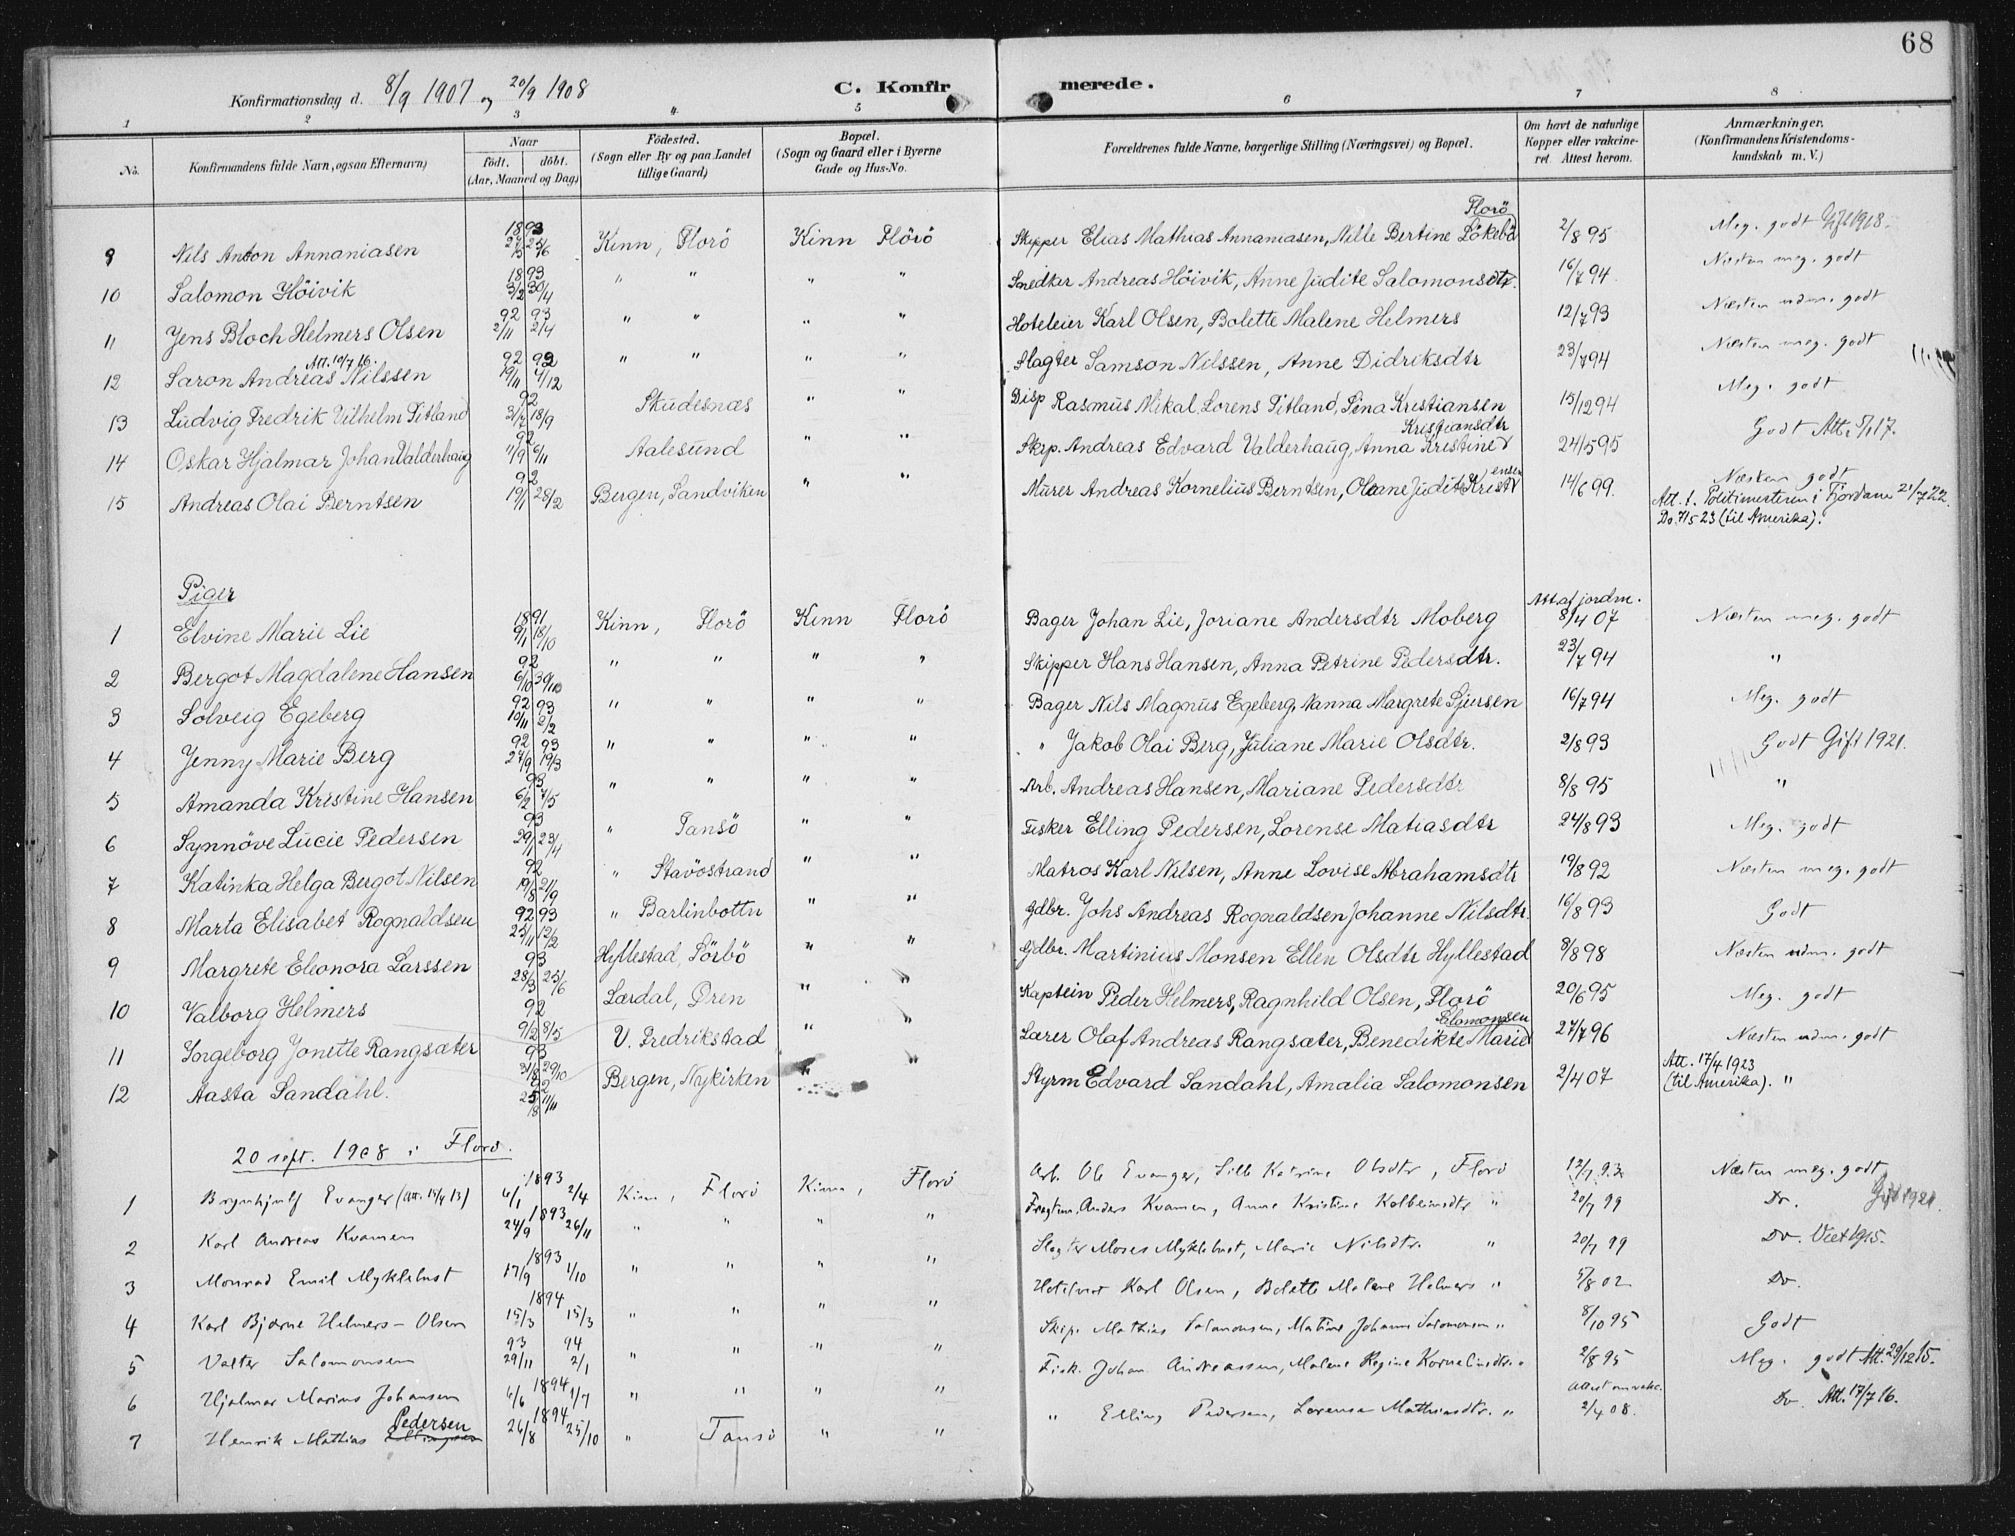 68
Konfirmationsdag d. 8/9 1907 og 20/9 1908 C. Konfirmerede.
1 2 3 4 5 6 7 8
No. Konfirmandens fulde Navn, ogsaa Efternavn) Naar födt. döbt. (Aar, Maaned og Dag) Födested. (Sogn eller By og paa Landet tillige Gaard) Bopæl. (Sogn og Gaard eller i Byerne Gade og Hus-No. Forældrenes fulde Navne, borgerlige Stilling (Næringsvei) og Bopæl. Om havt de naturlige Kopper eller vakcineret. Attest herom. Anmærkninger. (Konfirmandens Kristendomskundskab m. V.)
9 Nils Anton Annaniasen 1893 25/6 Kinn, Florö Kinn Florö Skipper Elias Mathias Annaniasen, Nille Bertine Lökebö Florö 2/8 95 Meg. godt Gift 1918.
10 Salomon Höivik 1893 3/2 30/4 " " " " Snedker Andreas Höivik, Anne Judite Salomonsdtr. 16/7 94 Næsten meg. godt
11 Jens Bloch Helmers Olsen 92 93 2/11 2/4 " " " " Hoteleier Karl Olsen, Bolette Malene Helmers 12/7 93 Næsten udm. godt
12 Saron Andreas Nilssen Att. 10/7 16. 92 92 19/11 4/12 " " " " Slagter Samson Nilssen, Anne Didriksdtr 23/7 94 Næsten meg. godt
13 Ludvig Fredrik Vilhelm Pitland 92 3/7 18/9 Skudesnæs " " Disp Rasmus Mikal Lorens Pitland, Sina Kristiansen 15/12 94 Meg. godt
14 Oskar Hjalmar Johan Valderhaug 92 11/9 6/11 Aalesund " " Skip. Andreas Edvard Valderhaug, Anna Kristine Kristiansdtr 24/5 95 Godt Att. 5/1 17.
15 Andreas Olai Berntsen 92 19/1 28/2 Bergen, Sandviken " " Murer Andreas Kornelius Berntsen, Oleane Judit Kristensen 14/6 99. Næsten godt
Att. t. Politimesteren i Fjordane 21/7 22.
Do. 7/5 23 (til Amerika).
Piger
1 Elvine Marie Lie 1891 9/1 18/10 Kinn, Florö Kinn Florö Bager Johan Lie, Joriane Andersdtr Moberg Att. af jordm. 8/4 07 Næsten meg. godt
2 Bergot Magdalene Hansen 92 6/10 30/10 " " " " Skipper Hans Hansen, Anna Petrine Pedersdtr. 23/7 94 "
3 Solveig Egeberg 92 93 10/11 2/2 " " " " Bager Nils Magnus Egeberg, Nanna Margrete Sjursen 16/7 94 Meg. godt
4 Jenny Marie Berg 92 93 27/9 19/3 " " " " " Jakob Olai Berg, Juliane Marie Olsdtr. 2/8 93 Godt Gift 1921.
5 Amanda Kristine Hansen 93 6/2 7/5 " " " " Arb. Andreas Hansen, Mariane Pedersdtr 8/8 95 "
6 Synnöve Lucie Pedersen 93 29/1 23/4 " Tansö " " Fisker Elling Pedersen, Lorense Matiasdtr 24/8 93 Meg. godt
7 Katinka Helga Bergot Nilsen 92 19/8 21/9 " Stavöstrand " " Matros Karl Nilsen, Anne Lovise Abrahamsdtr 19/8 92 Næsten meg. godt
8 Marta Elisabet Rognaldsen 92 93 25/11 12/2 " Barlinbottn " " Gdbr. Johs Andreas Rognaldsen Johanne Nilsdtr. 16/8 93 Godt
9 Margrete Eleonora Larssen 93 28/3 25/6 Hyllestad, Sörbö " " Gdbr. Martinius Monsen Ellen Olsdtr Hyllestad 8/8 98 Næsten udm. godt
10 Valborg Helmers 92 9/2 8/5 Lærdal, Øren " " Kaptein Peder Helmers, Ragnhild Olsen, Florö 20/6 95 Meg. godt
11 Ingeborg Jonette Rangsæter 93 31/8 29/10 V. Fredrikstad " " Lærer Olaf Andreas Rangsæter, Benedikte Marie Elomonsen 27/7 96 Næsten udm. godt
12 Aasta Sandahl. 92 25/8 11/11 Bergen, Nykirken " Styrm Edvard Sandahl, Amalia Salomonsen 2/4 07 Att. 17/4 1923 (til Amerika). "
20 sept. 1908 i Florö.
1 Brynhjulf Evanger (Att. 15/4 13) 1893 6/1 2/4 Kinn, Florö Kinn, Florö Arb. Ole Evanger, Sille Katrine Olsdtr, Florö 12/7 93 Næsten meg. godt
2 Karl Andreas Kvamen 1893 24/9 26/11 " " " " Fragtem. Anders Kvamen, Anne Kristine Kolbeinsdtr " 20/7 99 Do. Gift 1921.
3 Monrad Emil Myklebust 1893 17/9 1/10 " " " " Slagter Moses Myklebust, Marie Nilsdtr. " 20/7 99 Do. Viet 1915.
4 Karl Bjarne Helmers-Olsen 1894 15/3 15/3 " " " " Hotelvert Karl Olsen, Bolette Malene Helmers " 5/8 02 Do.
5 Valter Salomonsen 93 94 29/11 2/1 " " " " Skip. Mathias Salomonsen, Martine Johanne Salomonsen " 8/10 95 Godt
6 Hjalmar Marius Johansen 1894 6/6 1/7 " " " " Fisk. Johan Andreassen, Malene Regine Korneliusdtr. " 2/8 95 Meg. godt Att. 29/12 15.
7 Henrik Mathias Ellingsen Pedersen 1894 26/8 25/10 " Tansö " " " Elling Pedersen, Lorense Mathiasdtr. " Attest om vakc. 2/4 08. Do. Att. 17/7 16.